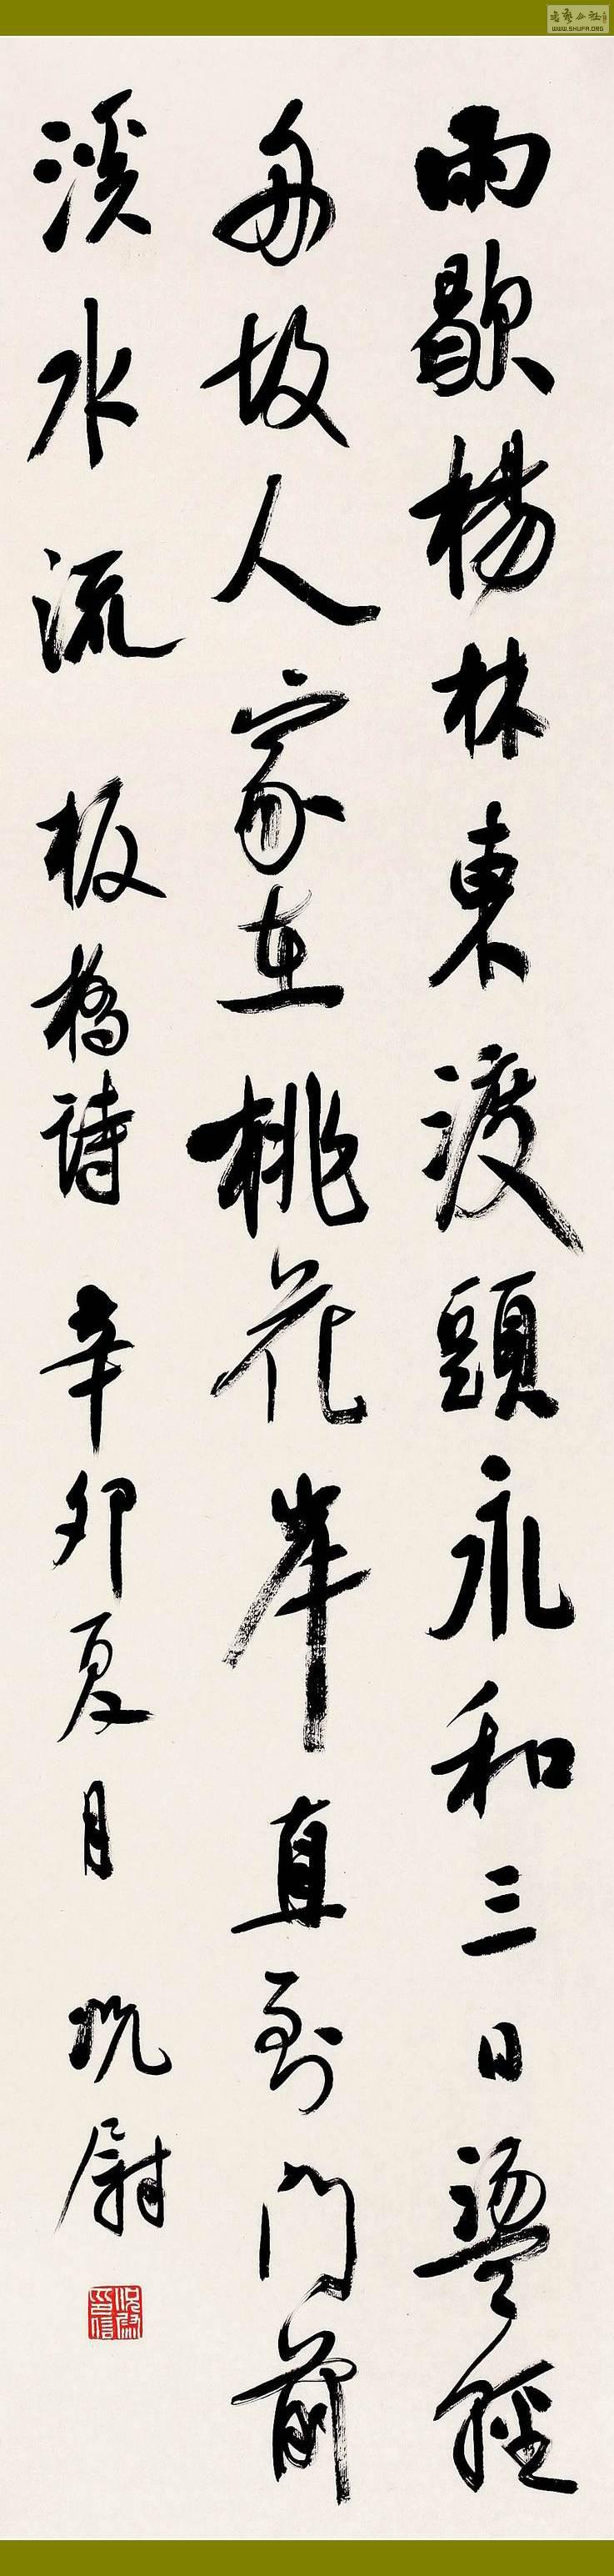 雨歇楊林東渡頭永和三日盪輕
舟故人家在桃花岸直到門前
溪水流 板橋詩 辛卯夏月 况尉
WWW.SHUFA.ORG